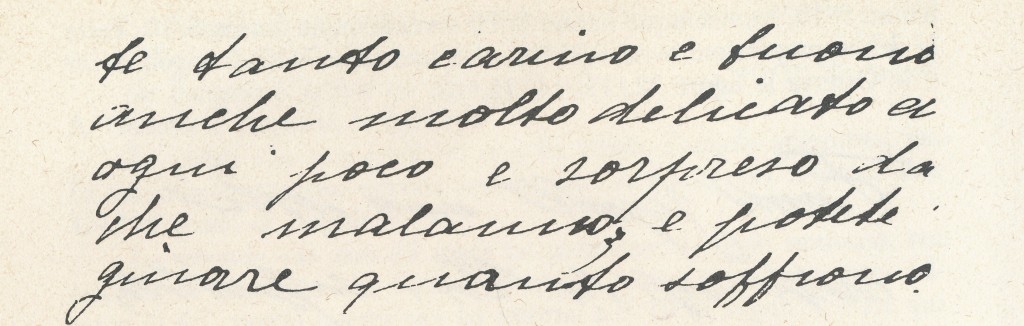 te tanto carino e buono
anche molto delicato a
ogni poco e sorpreso da
che malanno, e potete
ginare quanto soffrono.